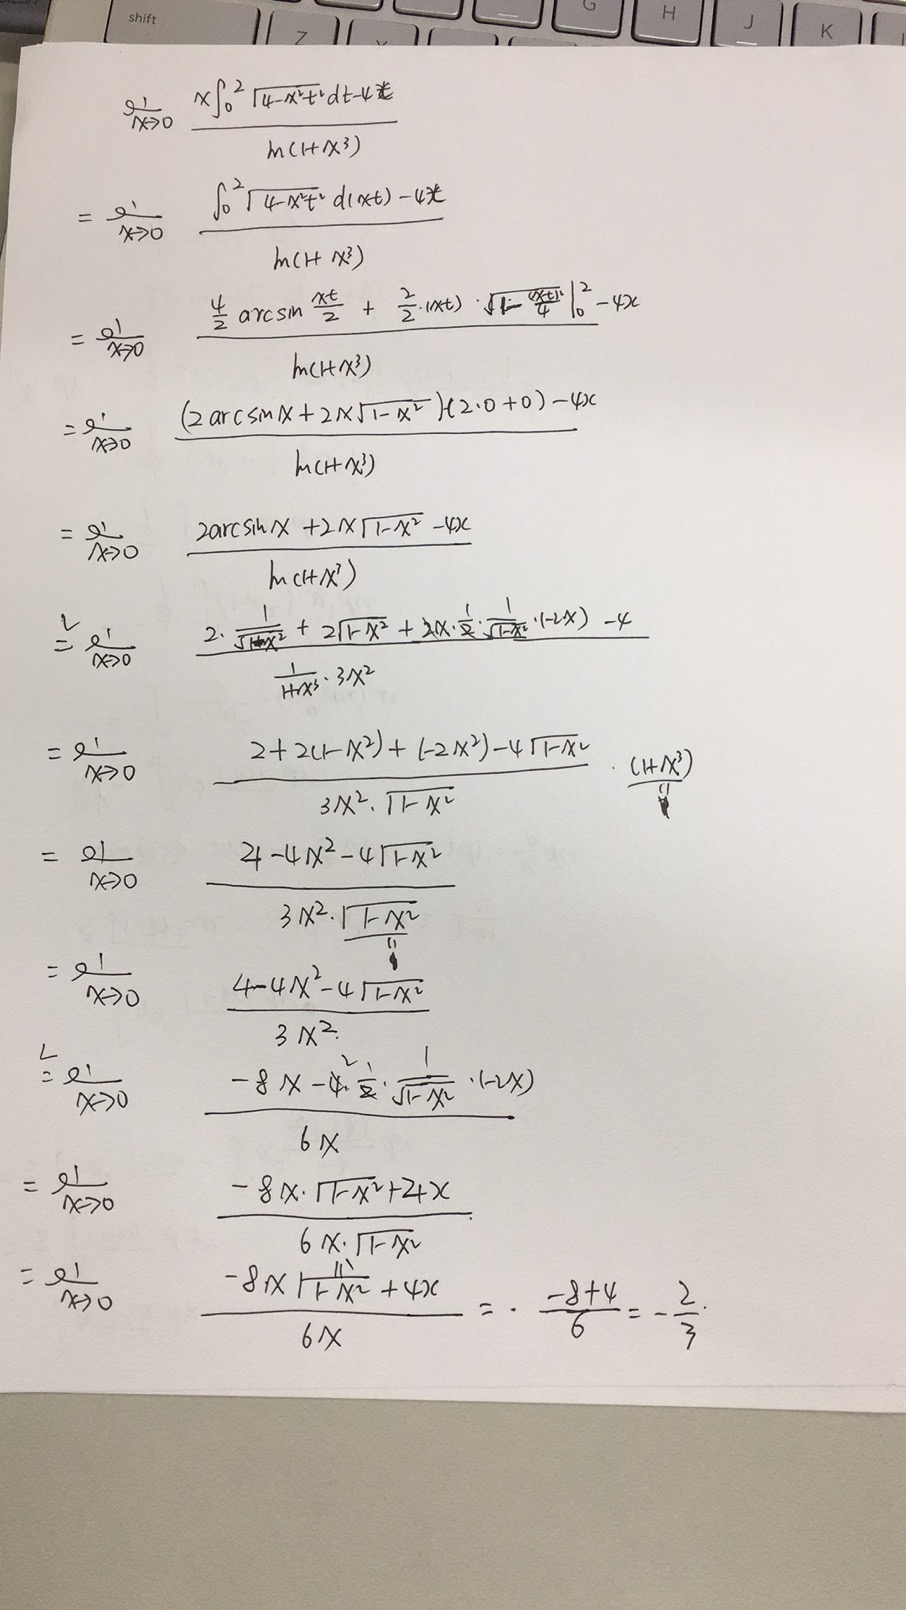 shift
Z
G
H
J
K
lim x→0 (x∫₀² √(4-x²t²) dt-4x) / ln(1+x³)
= lim x→0 (∫₀² √(4-x²t²) d(xt) -4x) / ln(1+x³)
= lim x→0 (4/2 arcsin xt/2 + 2/2·(xt)·√(1-(xt)²/4) |₀² -4x) / ln(1+x³)
= lim x→0 ((2arcsinx+2x√(1-x²))-(2·0+0)-4x) / ln(1+x³)
= lim x→0 (2arcsinx+2x√(1-x²) -4x) / ln(1+x³)
L= lim x→0 (2·1/√(1-x²) + 2√(1-x²) + 2x·1/2·1/√(1-x²)·(-2x) -4) / (1/(1+x³)·3x²)
= lim x→0 (2+2(1-x²)+(-2x²)-4√(1-x²)) / (3x²·√(1-x²)) · (1+x³)
1
= lim x→0 (4-4x²-4√(1-x²)) / (3x²·√(1-x²))
1
= lim x→0 (4-4x²-4√(1-x²)) / 3x²
L= lim x→0 (-8x-4·1/2·1/√(1-x²)·(-2x)) / 6x
= lim x→0 (-8x·√(1-x²)+4x) / (6x·√(1-x²))
= lim x→0 (-8x√(1-x²)+4x) / 6x = (-8+4)/6 = -2/3.